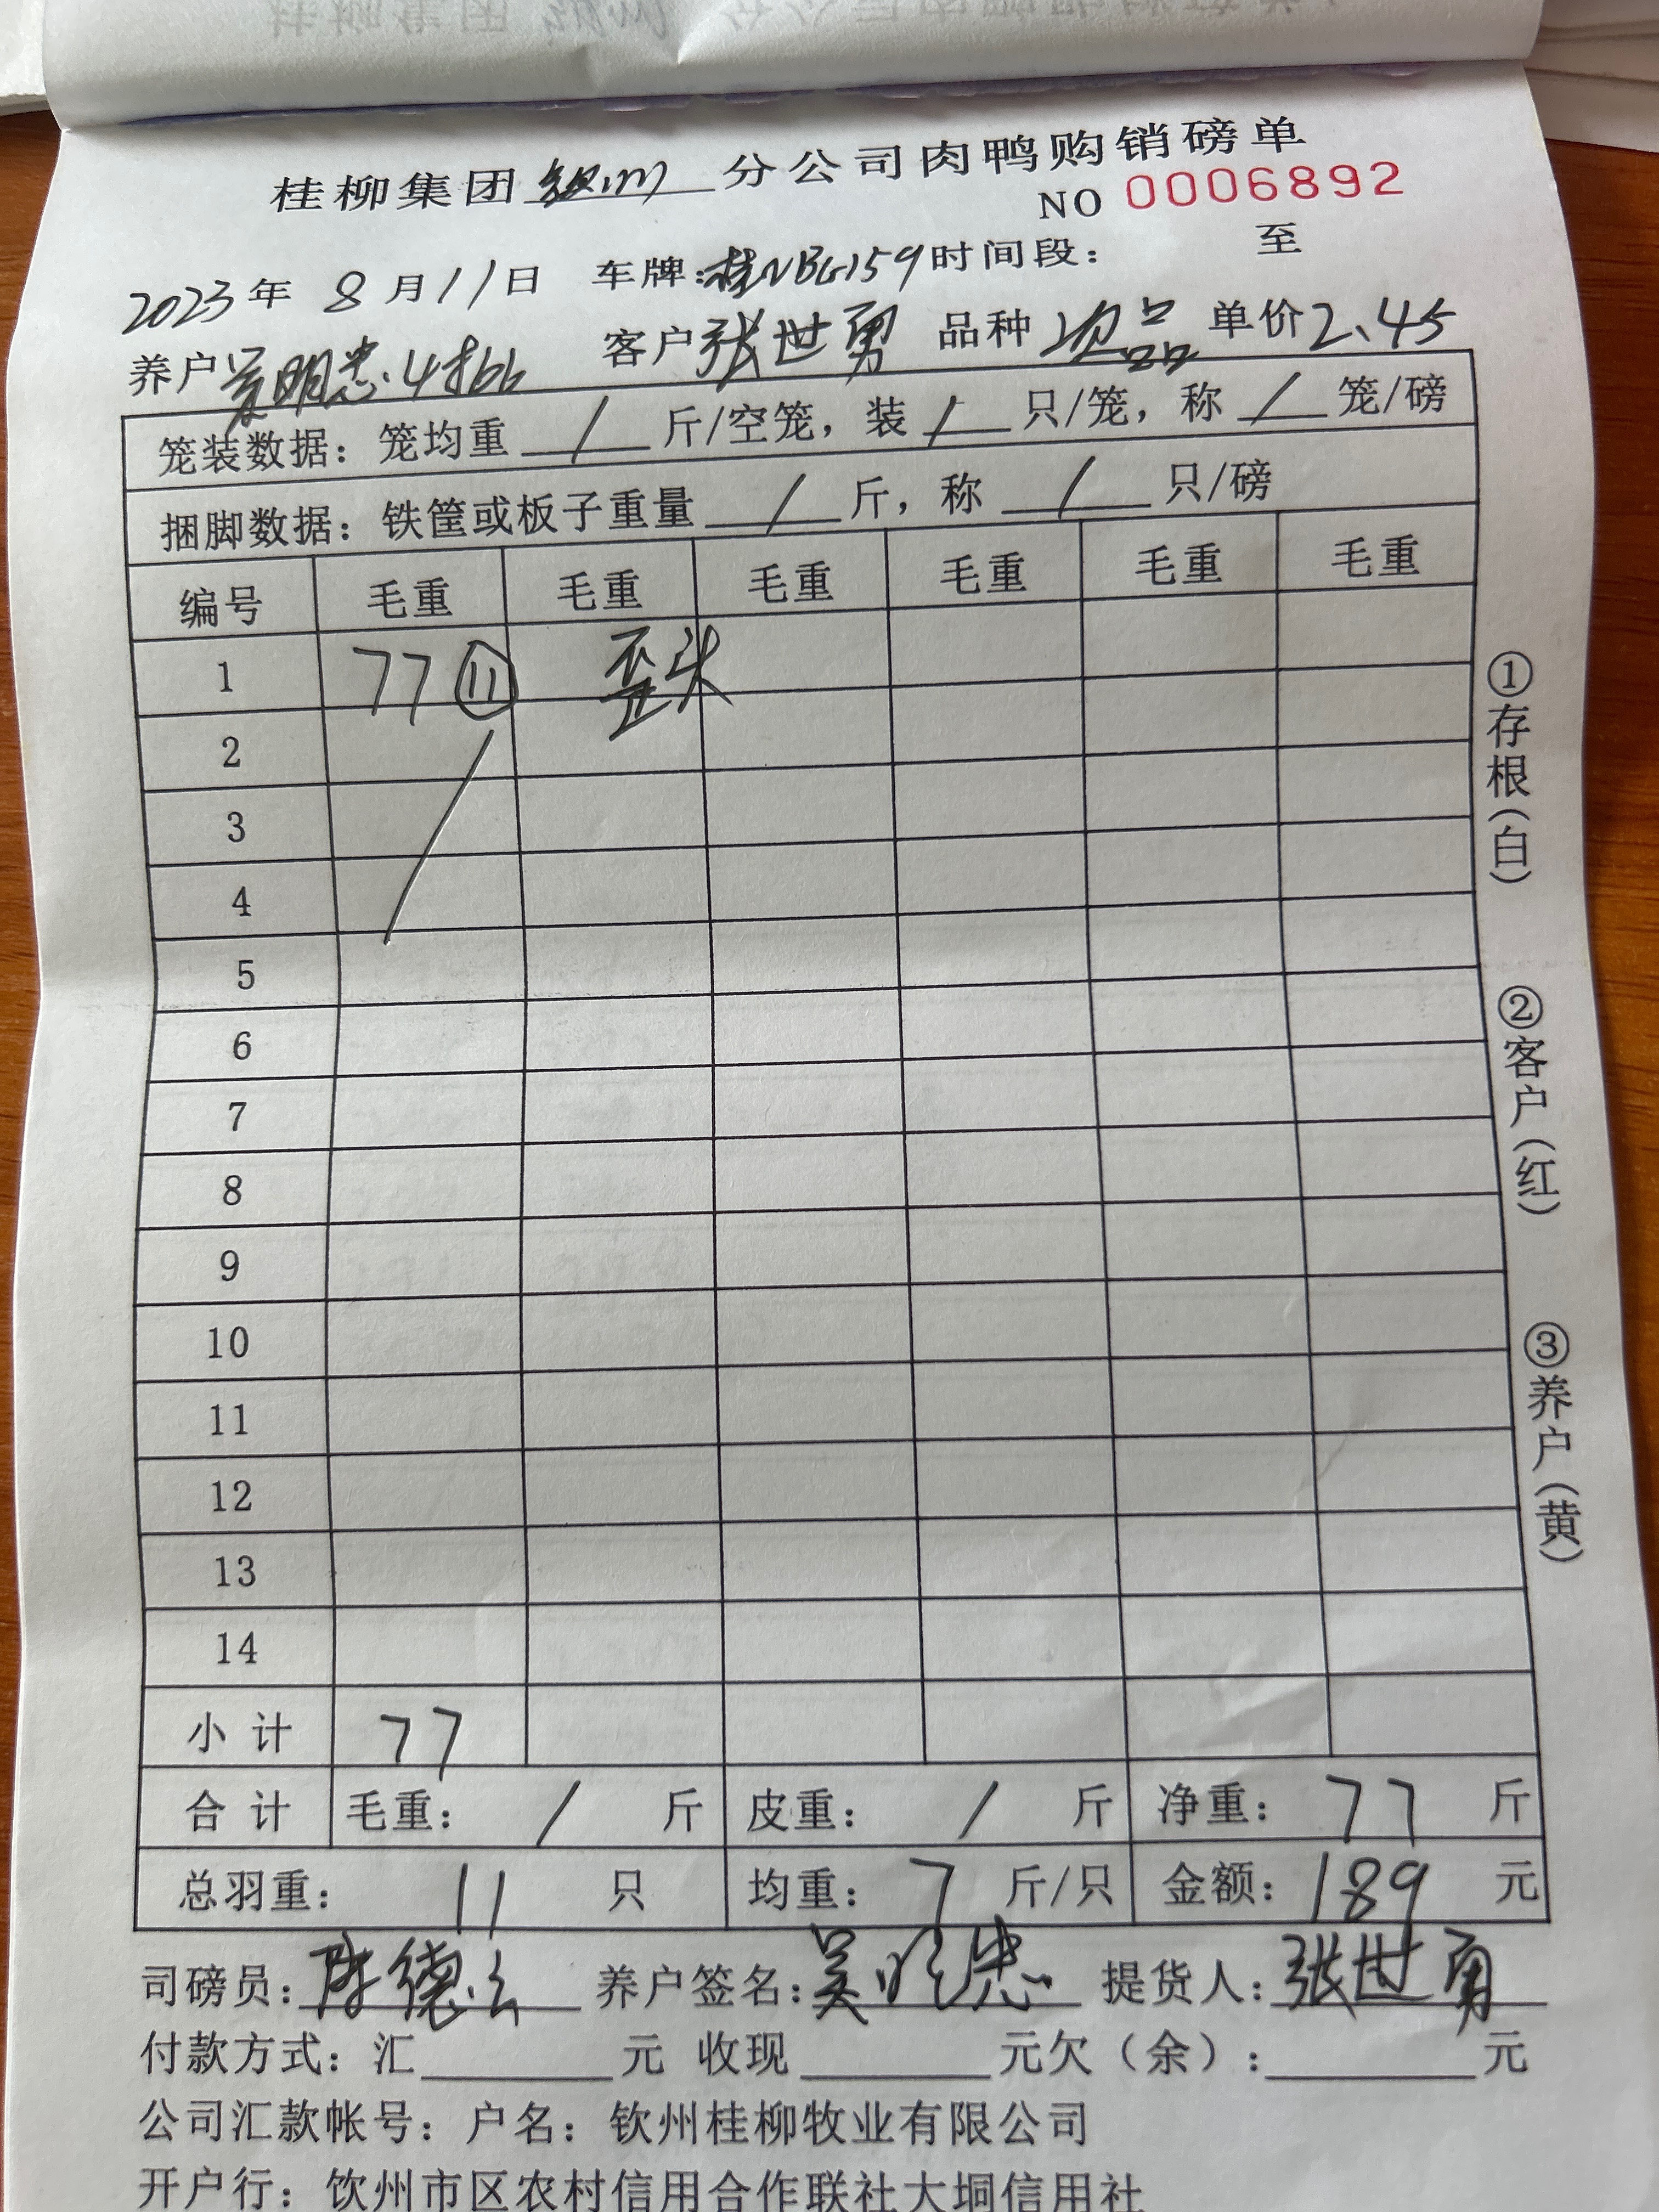 桂柳集团钦州分公司肉鸭购销磅单
NO 0006892
2023年 8月11日 车牌:桂NBG159时间段: 至
养户吴明忠.4批 客户张世勇 品种次品 单价2.45
笼装数据：笼均重 / 斤/空笼，装 / 只/笼，称 / 笼/磅
捆脚数据：铁筐或板子重量 / 斤，称 / 只/磅
编号 毛重 毛重 毛重 毛重 毛重 毛重
1 77 ⑪ 歪头
2
3
4
5
6
7
8
9
10
11
12
13
14
小计 77
合计 毛重： / 斤 皮重： / 斤 净重： 77 斤
总羽重： 11 只 均重： 7 斤/只 金额：189 元
司磅员：陈德云 养户签名：吴明忠 提货人：张世勇
付款方式：汇 元 收现 元欠（余）： 元
公司汇款帐号：户名：钦州桂柳牧业有限公司
开户行：饮州市区农村信用合作联社大垌信用社
①存根(白)
②客户(红)
③养户(黄)